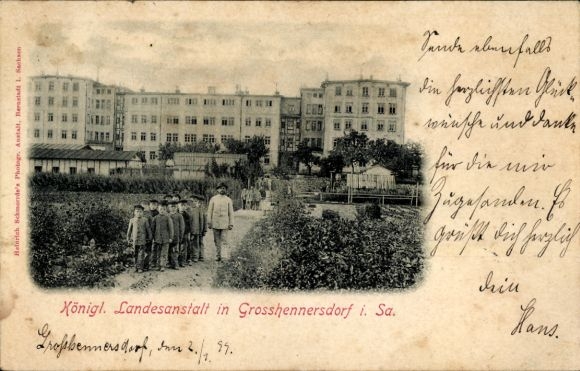 Sende ebenfalls
die herzlichsten Glück-
wünsche und danke
für die mir
Zugesanden. Es
grüßt dich herzlich
dein
Hans.
Heinrich Schmorrde's Photogr. Anstalt, Bernstadt i. Sachsen
Königl. Landesanstalt in Grosshennersdorf i. Sa.
Großhennersdorf, den 2./1. 99.